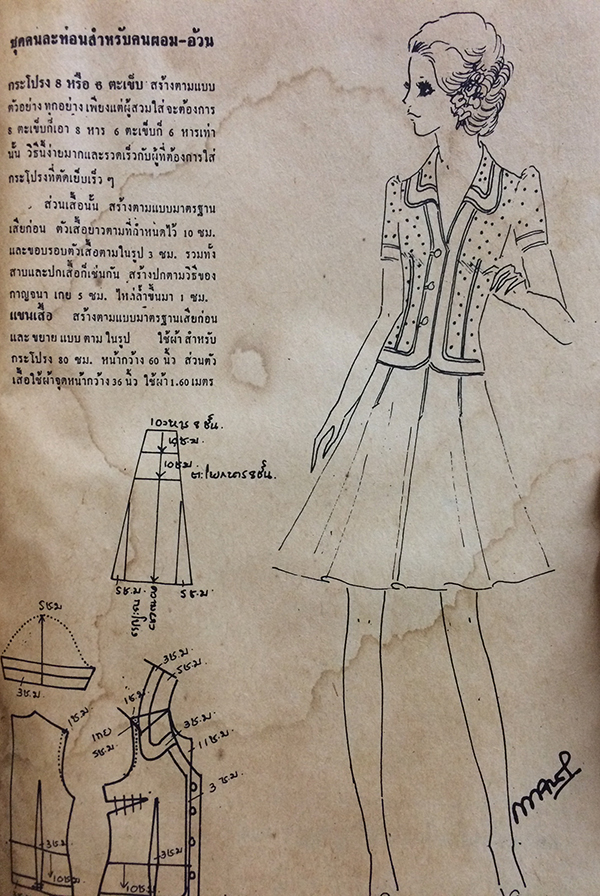 ชุดคนละท่อนสำหรับคนผอม-อ้วน
กระโปรง 8 หรือ 6 ตะเข็บ สร้างตามแบบ
ตัวอย่างทุกอย่าง เพียงแต่ผู้สวมใส่จะต้องการ
8 ตะเข็บก็เอา 8 หาร 6 ตะเข็บก็ 6 หารเท่า
นั้น วิธีนี้ง่ายมากและรวดเร็วกับผู้ที่ต้องการใส่
กระโปรงที่ตัดเย็บเร็ว ๆ
ส่วนเสื้อนั้น สร้างตามแบบมาตรฐาน
เสียก่อน ตัวเสื้อยาวตามที่กำหนดไว้ 10 ซม.
และขอบรอบตัวเสื้อตามในรูป 3 ซม. รวมทั้ง
สาบและปกเสื้อก็เช่นกัน สร้างปกตามวิธีของ
กาญจนา เกย 5 ซม. ไหล่ล้ำขึ้นมา 1 ซม.
แขนเสื้อ สร้างตามแบบมาตรฐานเสียก่อน
และขยายแบบตามในรูป ใช้ผ้าสำหรับ
กระโปรง 80 ซม. หน้ากว้าง 60 นิ้ว ส่วนตัว
เสื้อใช้ผ้าจุดหน้ากว้าง 36 นิ้ว ใช้ผ้า 1.60 เมตร
เอวหาร 8 ชิ้น.
10ซ.ม.
สะโพกหาร 8 ชิ้น.
5ซ.ม.
ความยาว
กระโปรง
5ซ.ม.
5ซ.ม
3ซ.ม.
1ซ.ม.
3ซ.ม
10ซ.ม
3ซ.ม.
5ซ.ม.
1ซ.ม.
เกย
5ซ.ม.
3ซ.ม.
11ซ.ม.
3 ซ.ม.
3ซ.ม.
10ซ.ม.